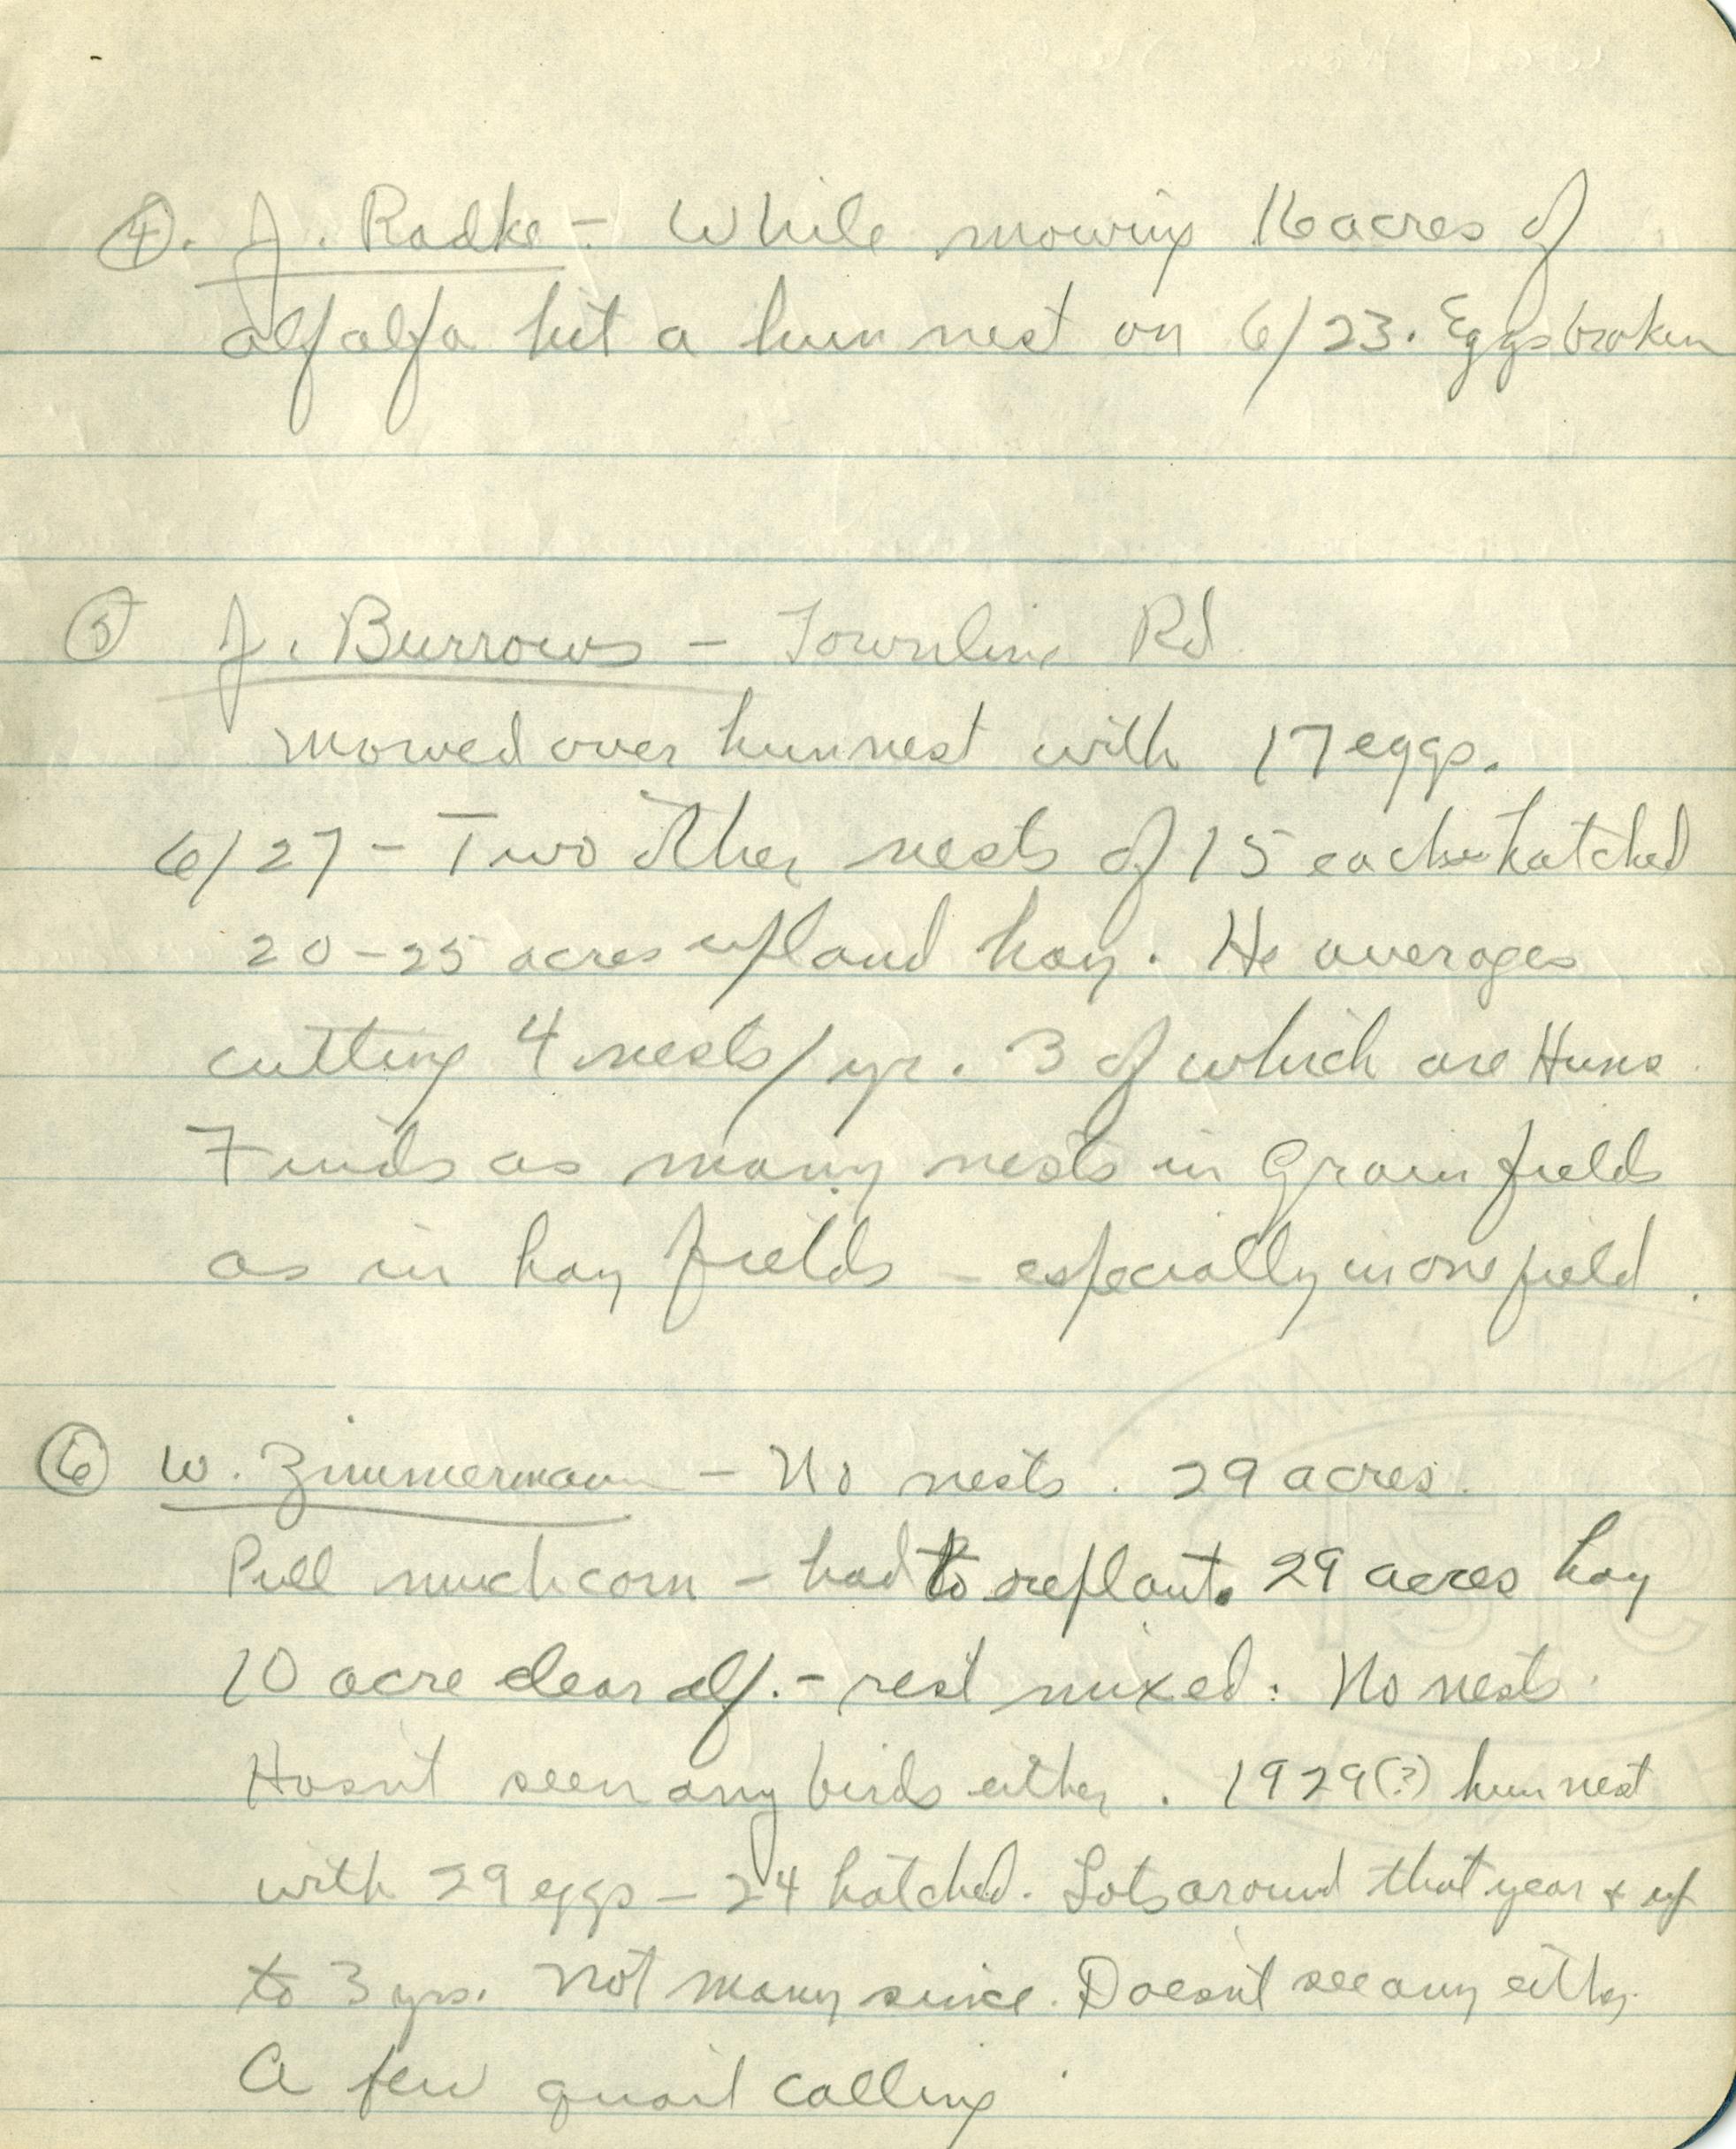 ④. J. Radke - While mowing 16 acres of
alfalfa hit a hun nest on 6/23. Eggs broken
⑤ J. Burrows - Townline Rd
mowed over hun nest with 17 eggs.
6/27 - Two other nests of 15 each hatched
20-25 acres upland hay. He averages
cutting 4 nests/yr. 3 of which are Huns
Finds as many nests in Grain fields
as in hay fields - especially in one field.
⑥ W. Zimmermann - No nests. 29 acres.
Pull much corn - had to replant. 29 acres hay
10 acre clear alf. - rest mixed: No nests.
Hasn't seen any birds either. 1929(?) hun nest
with 29 eggs - 24 hatched. Lots around that year & up
to 3 yrs. Not many since. Doesn't see any either.
A few quail calling